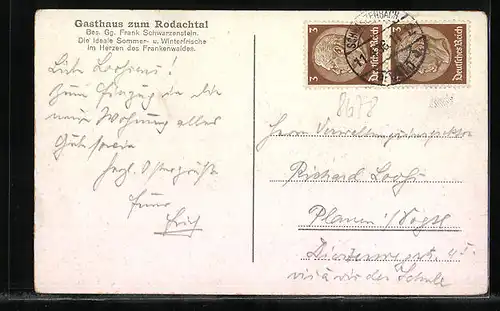 Gasthaus zum Rodachtal
Bes. Gg. Frank Schwarzenstein.
Die ideale Sommer- u. Winterfrische
im Herzen des Frankenwaldes.
3 Deutsches Reich
3 Deutsches Reich
8678
Zum Einzug in die
neue Wohnung alles
Gute sowie
herzl. Ostergrüße
Erich
Herrn Verwaltungsinspektor
Richard
Plauen i/Vogtl
vis à vis der Schule